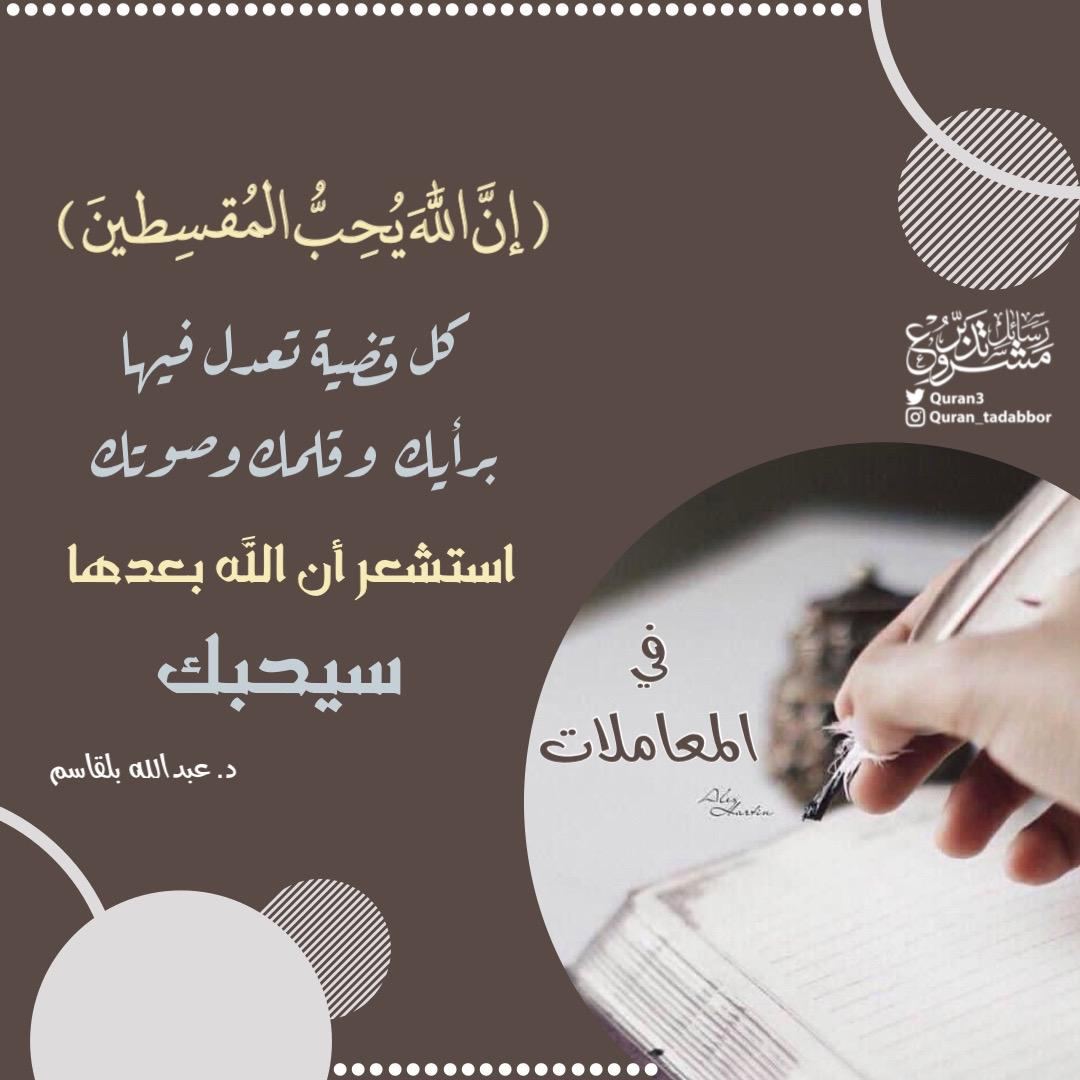 ﴿إِنَّ اللَّهَ يُحِبُّ الْمُقْسِطِينَ﴾
كل قضية تعدل فيها
برأيك وقلمك وصوتك
استشعر أن اللَّه بعدها
سيحبك
د. عبدالله بلقاسم
رسائل تدبر
مشروع
Quran3
Quran_tadabbor
في
المعاملات